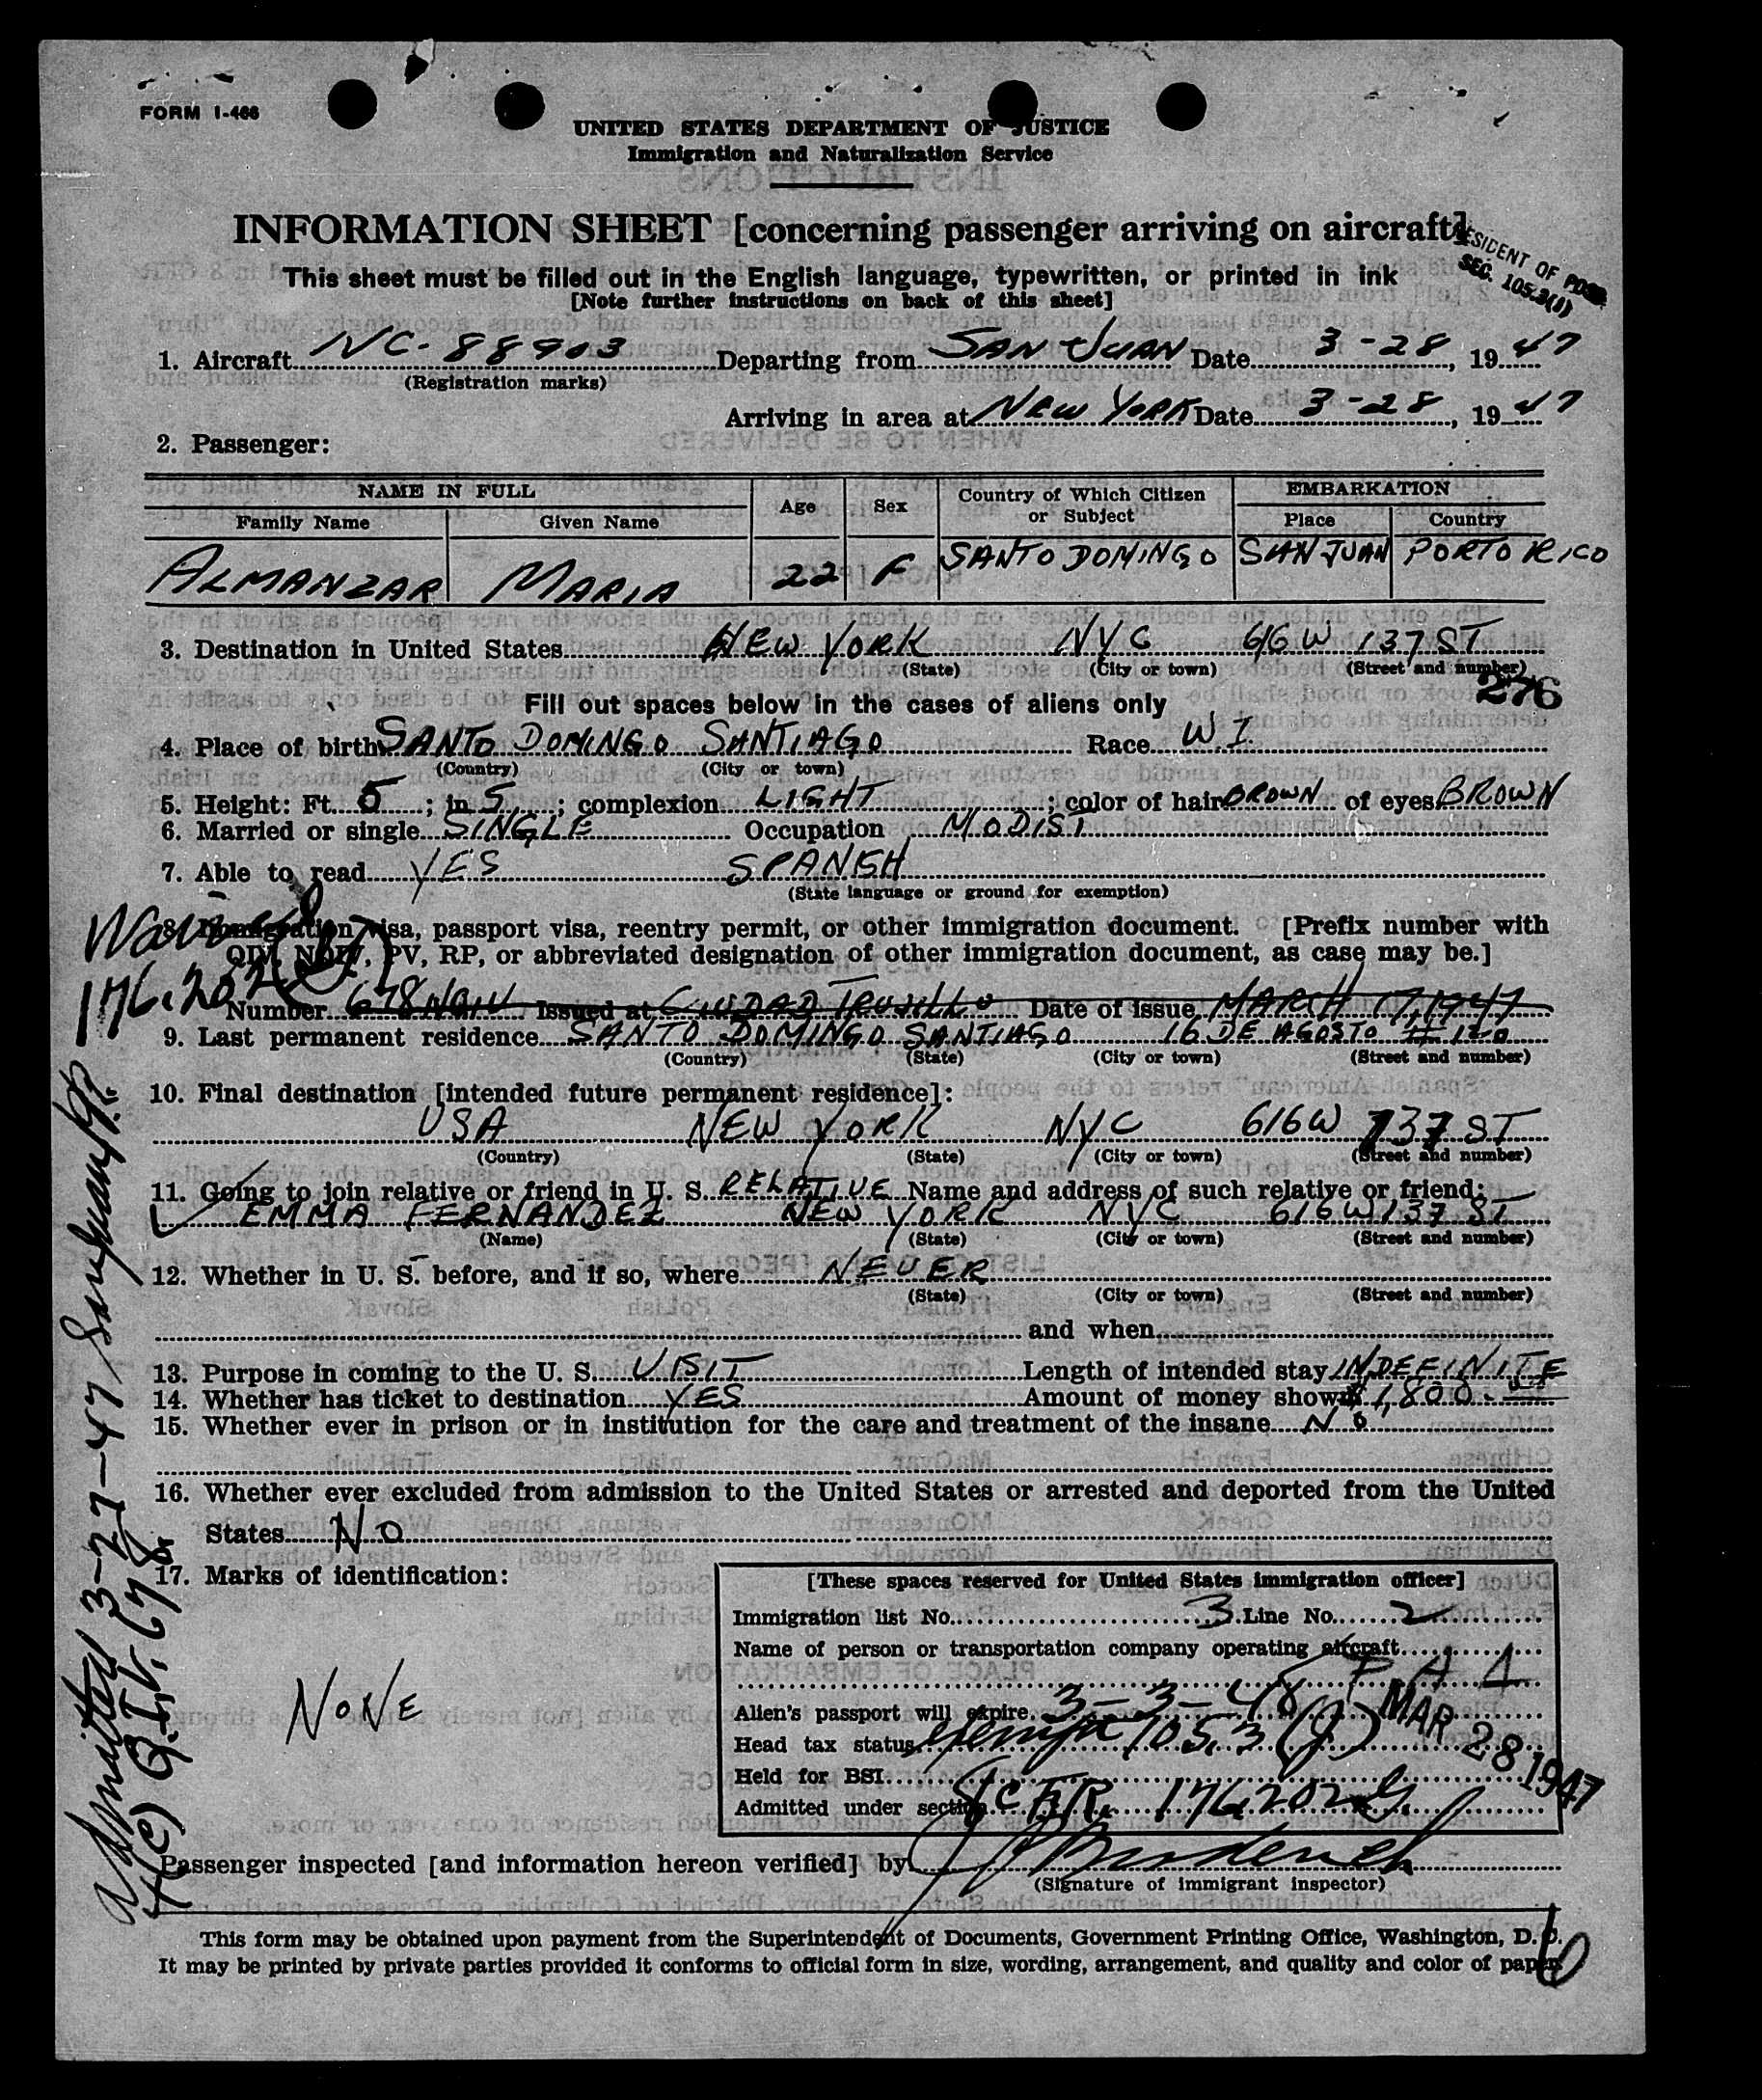 FORM I-466
UNITED STATES DEPARTMENT OF JUSTICE
Immigration and Naturalization Service
INFORMATION SHEET [concerning passenger arriving on aircraft]
ESIDENT OF POSS.
SEC. 105.3(1)
This sheet must be filled out in the English language, typewritten, or printed in ink
[Note further instructions on back of this sheet]
1. Aircraft NC-88903 Departing from SAN JUAN Date 3-28, 19 47
(Registration marks)
Arriving in area at NEW YORK Date 3-28, 19 47
2. Passenger:
NAME IN FULL Age Sex Country of Which Citizen or Subject EMBARKATION
Family Name Given Name Place Country
ALMANZAR MARIA 22 F SANTO DOMINGO SAN JUAN PORTO RICO
3. Destination in United States NEW YORK NYC 616 W 137 ST
(State) (City or town) (Street and number)
276
Fill out spaces below in the cases of aliens only
4. Place of birth SANTO DOMINGO SANTIAGO Race W I
(Country) (City or town)
5. Height: Ft. 5; in 5; complexion LIGHT; color of hair BROWN of eyes BROWN
6. Married or single SINGLE Occupation MODIST
7. Able to read YES SPANISH
(State language or ground for exemption)
8. Immigration visa, passport visa, reentry permit, or other immigration document. [Prefix number with
QIV, NQIV, PV, RP, or abbreviated designation of other immigration document, as case may be.]
176.202
Number 678 NQIV Issued at CIUDAD TRUJILLO Date of issue MARCH 17, 1947
9. Last permanent residence SANTO DOMINGO SANTIAGO 16 DE AGOSTO # 120
(Country) (State) (City or town) (Street and number)
10. Final destination [intended future permanent residence]:
USA NEW YORK NYC 616 W 137 ST
(Country) (State) (City or town) (Street and number)
11. Going to join relative or friend in U. S. RELATIVE Name and address of such relative or friend:
EMMA FERNANDEZ NEW YORK NYC 616 W 137 ST
(Name) (State) (City or town) (Street and number)
12. Whether in U. S. before, and if so, where NEVER
(State) (City or town) (Street and number)
and when
13. Purpose in coming to the U. S. VISIT Length of intended stay INDEFINITE
14. Whether has ticket to destination YES Amount of money shown $1,800.00
15. Whether ever in prison or in institution for the care and treatment of the insane NO
16. Whether ever excluded from admission to the United States or arrested and deported from the United
States NO
17. Marks of identification:
NONE
[These spaces reserved for United States immigration officer]
Immigration list No. 3 Line No. 2
Name of person or transportation company operating aircraft
P A A
Alien's passport will expire 3-3-48
MAR 28 1947
Head tax status exempt 105.3 (J)
Held for BSI
Admitted under section 8 CFR 176.202
Passenger inspected [and information hereon verified] by
(Signature of immigrant inspector)
Admitted 3-27-47 San Juan P.R.
4(c) Q.I.V. 678
This form may be obtained upon payment from the Superintendent of Documents, Government Printing Office, Washington, D. C.
It may be printed by private parties provided it conforms to official form in size, wording, arrangement, and quality and color of paper.
6